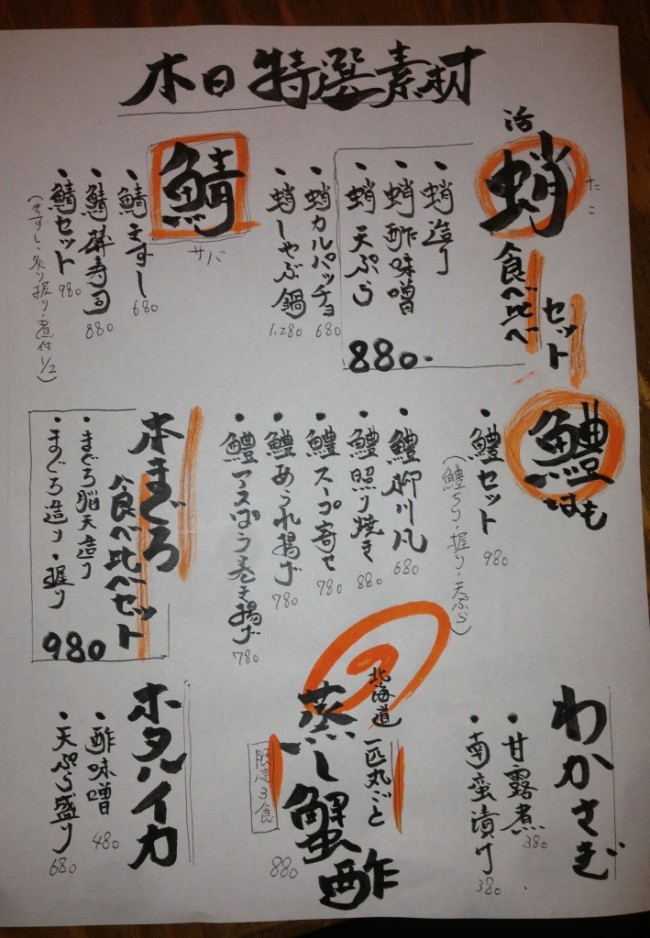 本日特選素材
活
蛸
たこ
食べ比べ
セット
・蛸造り
・蛸酢味噌
・蛸天ぷら
880.
・蛸カルパッチョ 680
・蛸しゃぶ鍋 1,280
鯖
サバ
・鯖きずし 680
・鯖棒寿司 880
・鯖セット 980
(きずし・炙り握り・煮付1/2)
鱧
はも
・鱧セット 980
(鱧ちり・握り・天ぷら)
・鱧柳川風 680
・鱧照り焼き 880
・鱧スープ寄せ 780
・鱧あられ揚げ 780
・鱧アスパラ巻き揚げ 780
本まぐろ
食べ比べセット
・まぐろ脳天造り
・まぐろ造り・握り
980
わかさぎ
・甘露煮 380
・南蛮漬け 380
北海道
一匹丸ごと
蒸し蟹酢
限定3食
880
ホタルイカ
・酢味噌 480
・天ぷら盛り 680